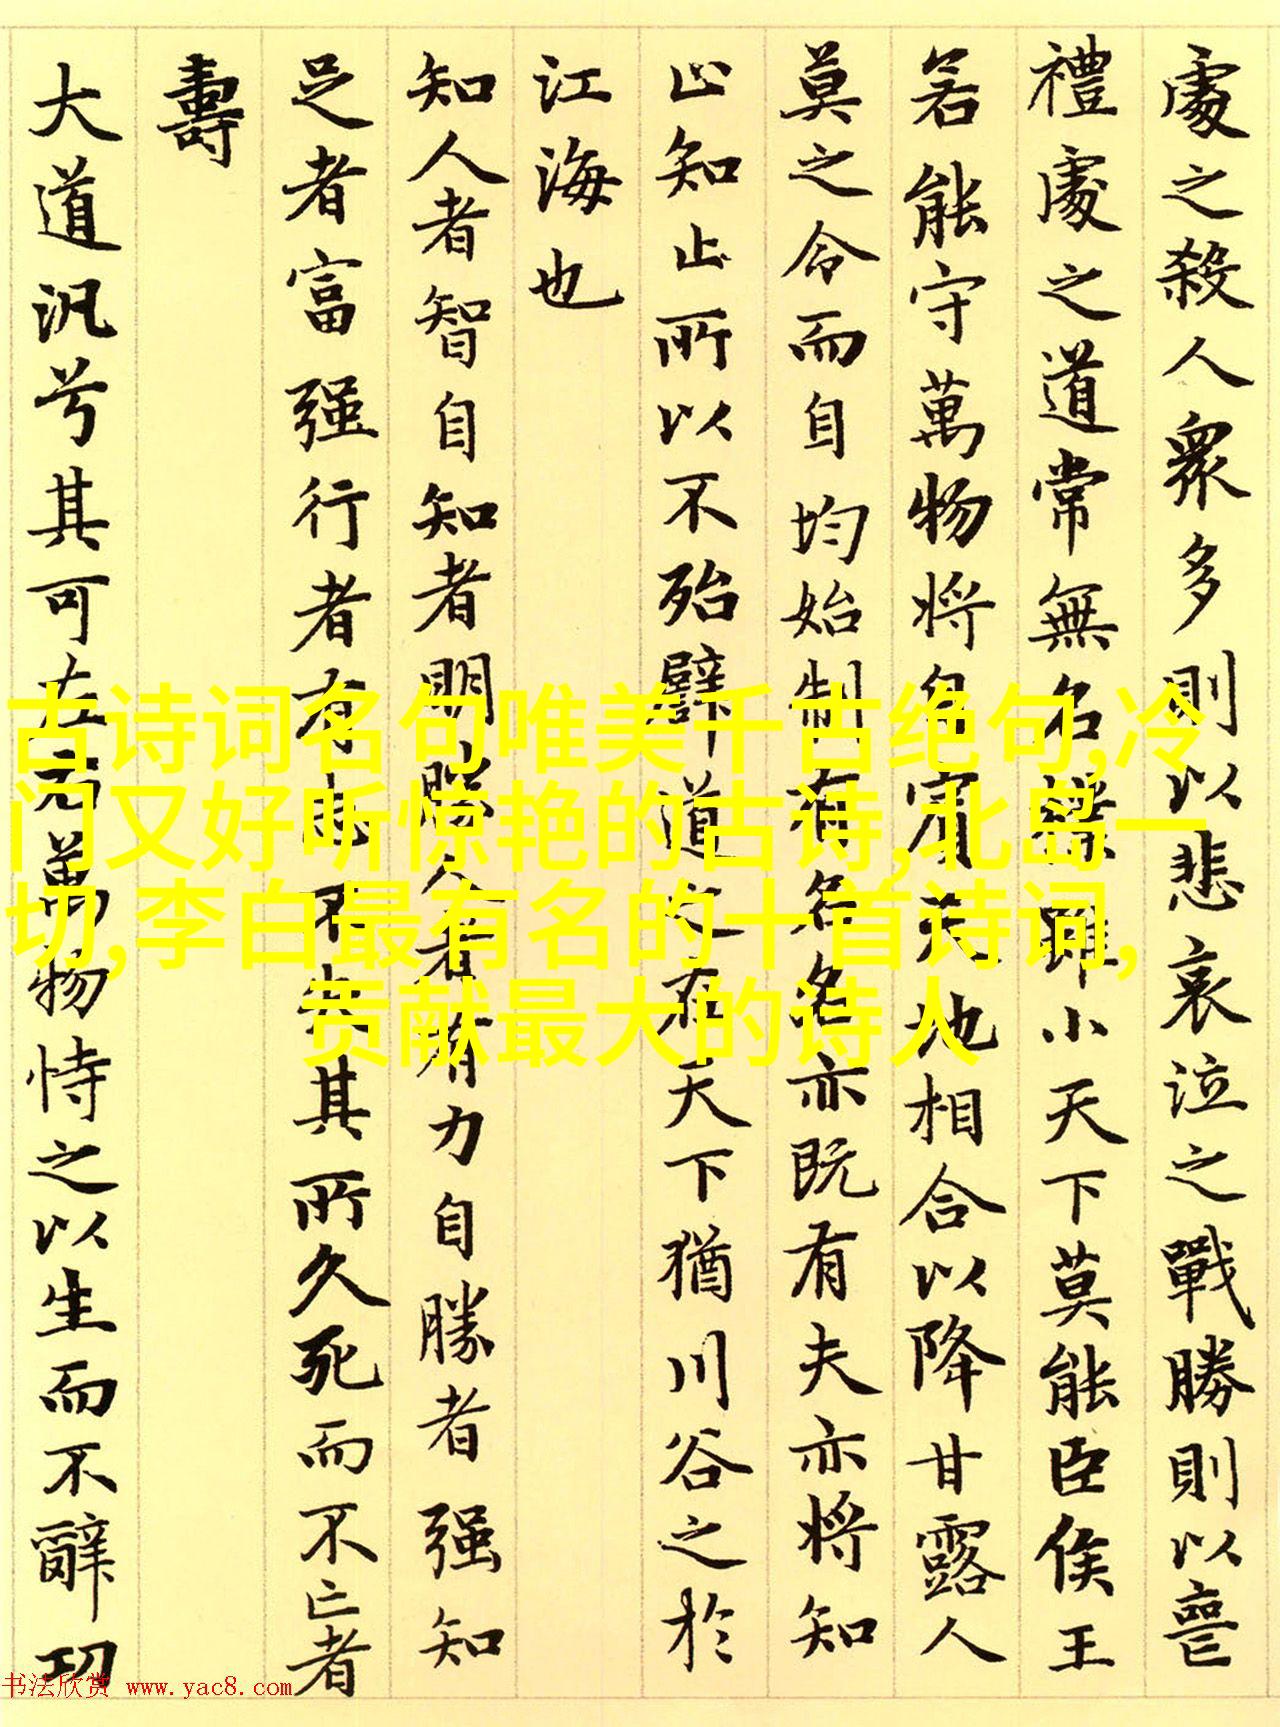 處之殺人衆多則以悲哀泣之戰勝則以喪
禮處之道常無名樸雖小天下莫能臣侯王
若能守萬物將自賓天地相合以降甘露人
莫之令而自均始制有名名亦既有夫亦將知
止知止所以不殆譬道之在天下猶川谷之於
江海也
知人者智自知者明勝人者有力自勝者强知
足者富强行者有志不失其所久死而不亡者
壽
大道汎兮其可左右萬物恃之以生而不辭功
古诗词名句唯美千古绝句,冷
门又好听惊艳的古诗,北岛一
切,李白最有名的十首诗词,
贡献最大的诗人
书法欣赏 www.yac8.com